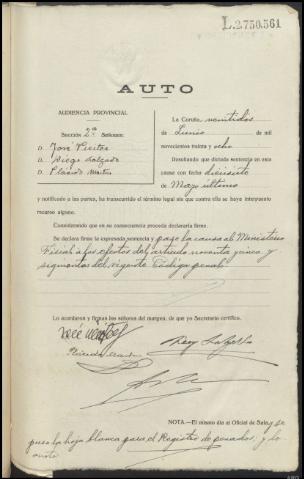 L.2750.561
AUTO
AUDIENCIA PROVINCIAL
Sección 2ª
Señores:
D. José
D. Diego Salgado
D. Plácido
La Coruña, veintidos
de Junio de mil
novecientos treinta y ocho
Resultando que dictada sentencia en esta
causa con fecha dieciseis
de Mayo último
y notificado a las partes, ha transcurrido el término legal sin que contra ella se haya interpuesto
recurso alguno.
Considerando que en su consecuencia procede declararla firme.
Se declara firme la expresada sentencia y pase la causa al Ministerio
Fiscal a los efectos del artículo noventa y cinco y
siguientes del vigente Código penal.
Lo acordaron y firman los señores del margen, de que yo Secretario certifico.
NOTA.—El mismo día al Oficial de Sala, y se
puso la hoja blanca para el Registro de penados, y lo
anoto.